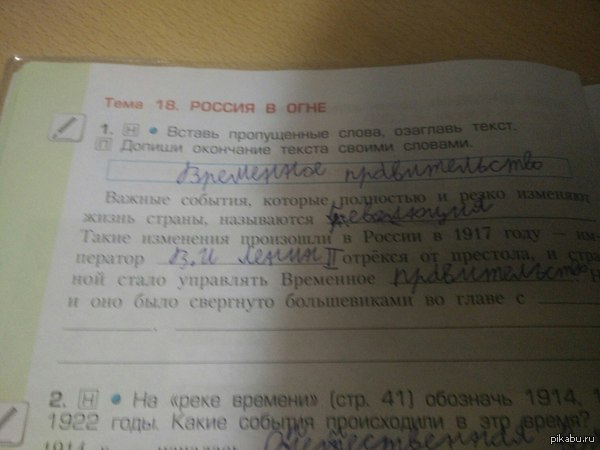 Тема 18. РОССИЯ В ОГНЕ
1. Н • Вставь пропущенные слова, озаглавь текст.
П Допиши окончание текста своими словами.
Временное правительство
Важные события, которые полностью и резко изменяют
жизнь страны, называются революция
Такие изменения произошли в России в 1917 году — им-
ператор В.И Ленин II отрёкся от престола, и стра
ной стало управлять Временное правительство Н
и оно было свергнуто большевиками во главе с
2. Н • На «реке времени» (стр. 41) обозначь 1914, 1
1922 годы. Какие события происходили в это время?
1914 г.
pikabu.ru